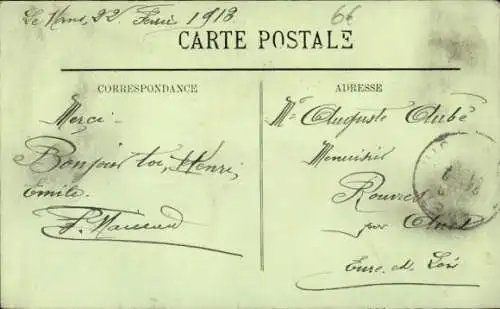 Le Mans, 22 Février 1913.
66
CARTE POSTALE
CORRESPONDANCE
ADRESSE
Merci.
Bonjour toi, Henri,
Emile.
Mr Auguste Aubé
Menuisier
Rouvres
par Anet
Eure-et-Loir